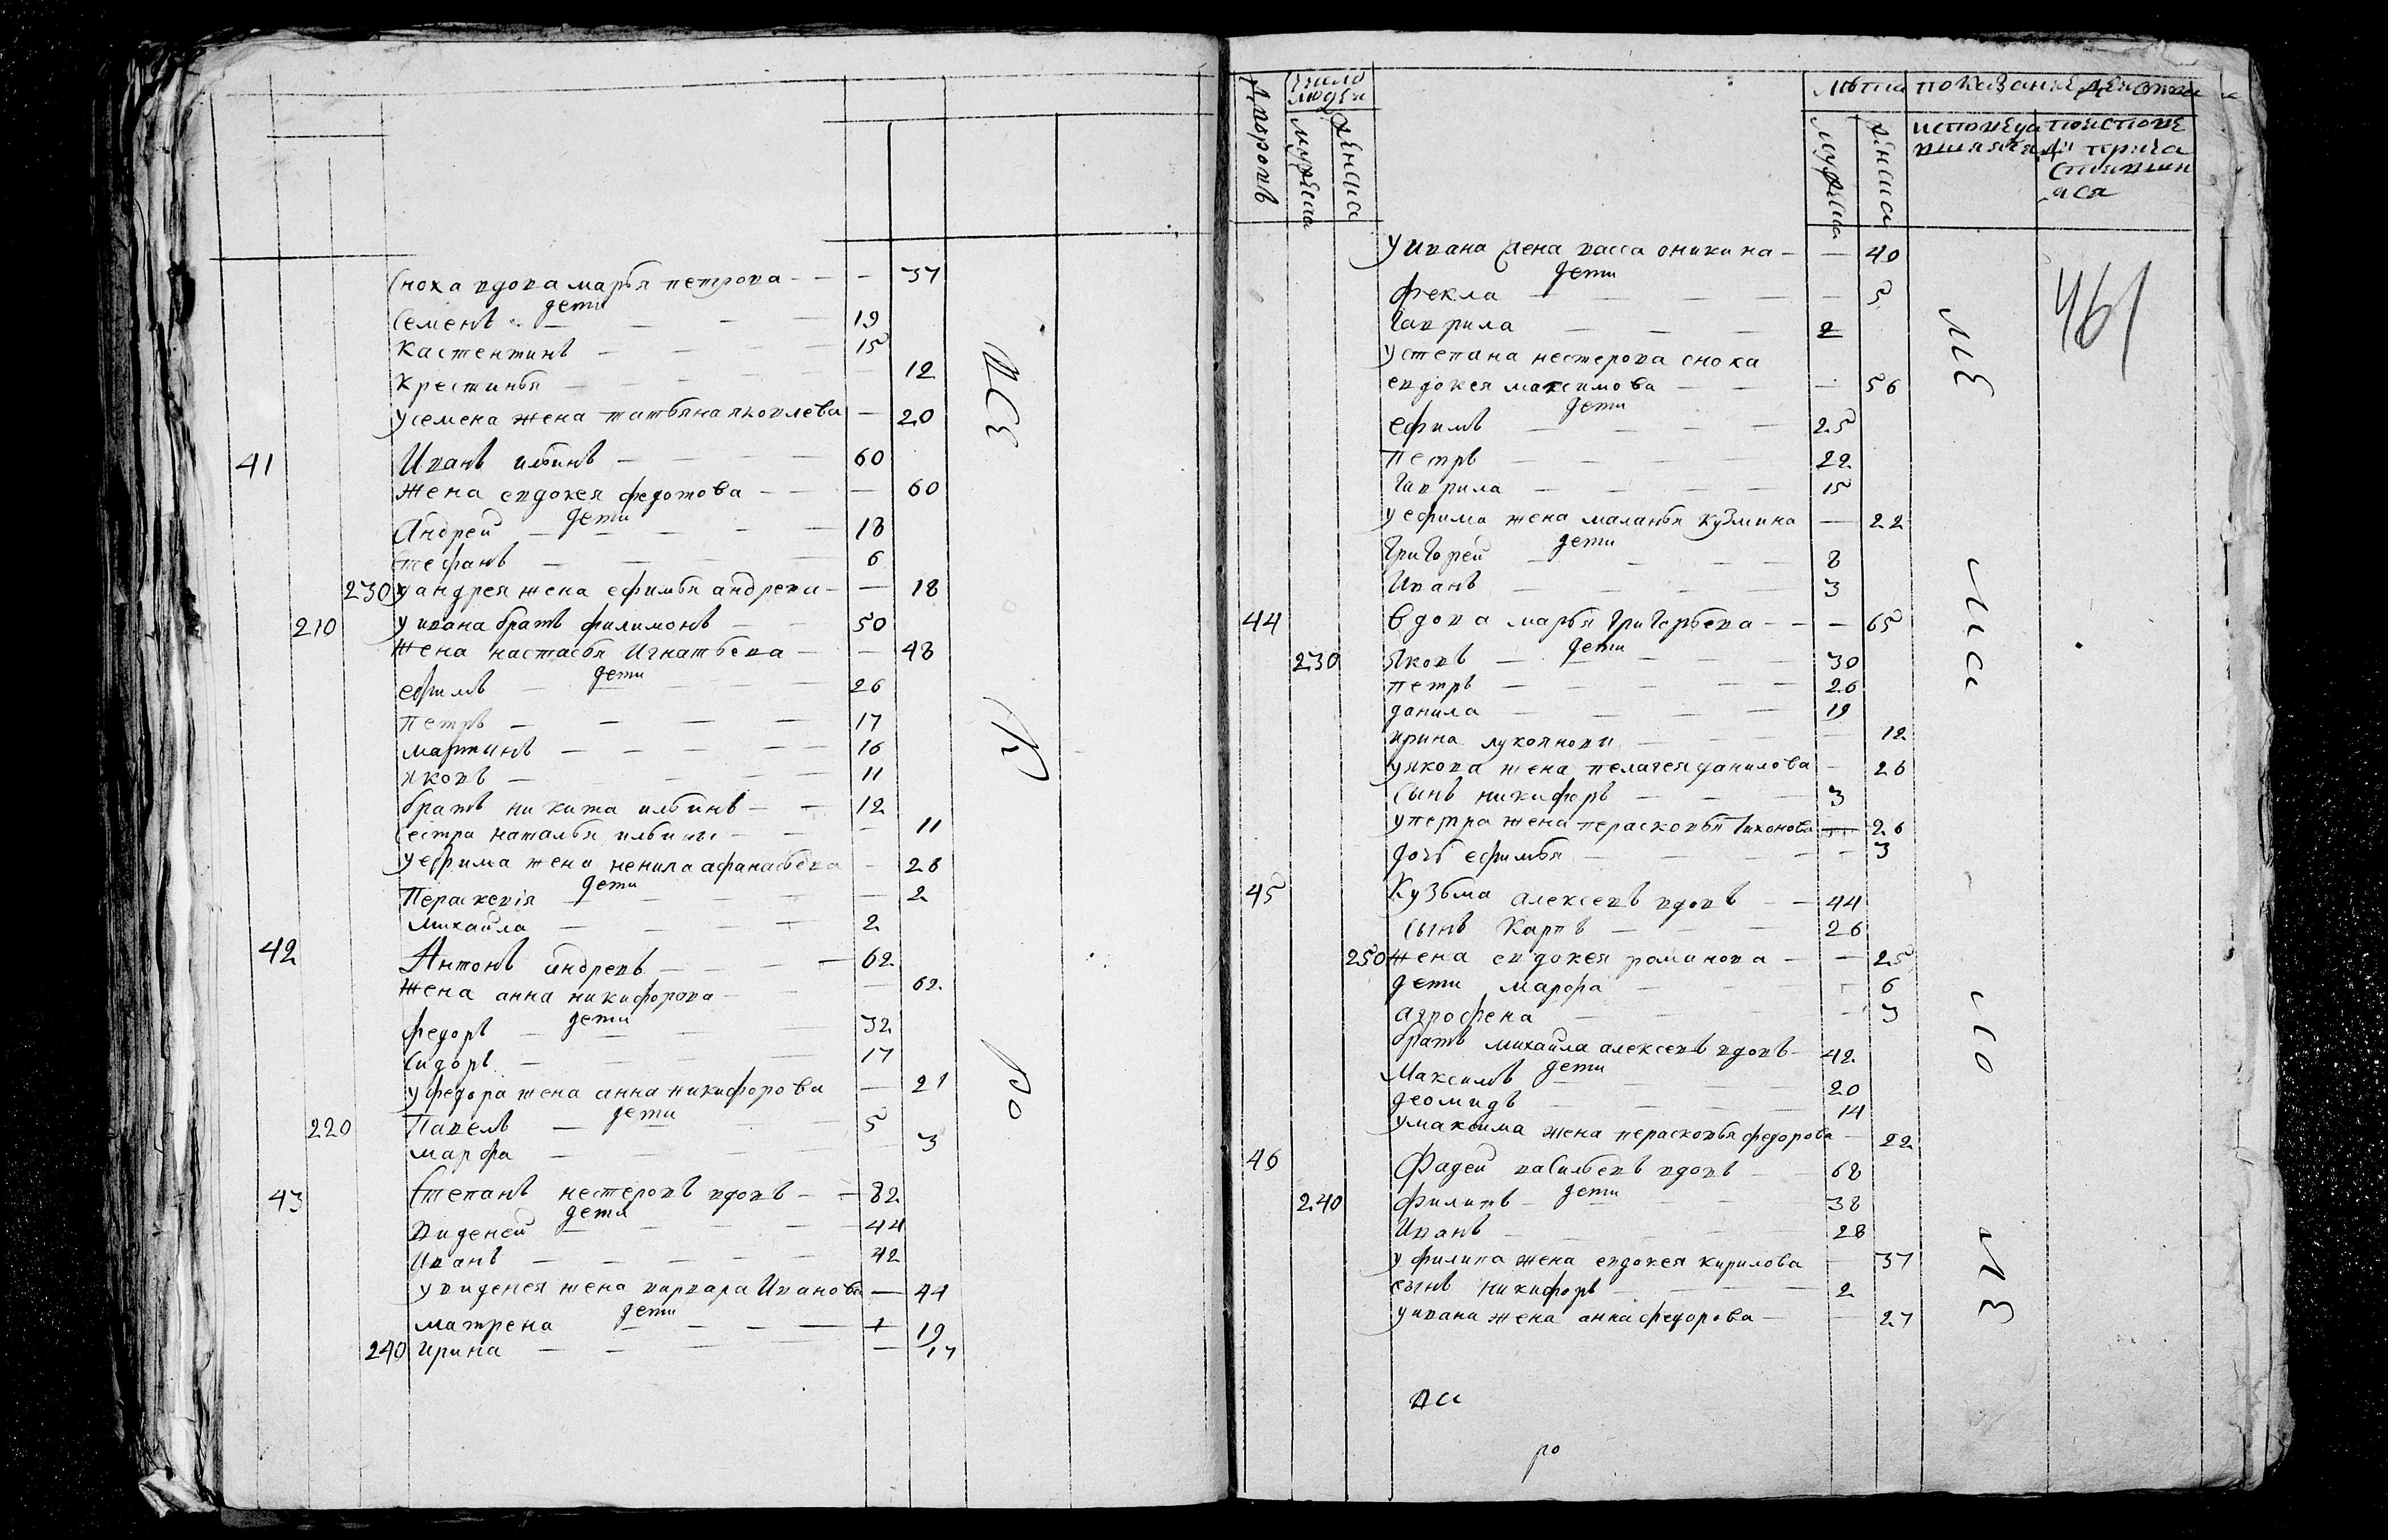 Сноха вдова марья петрова — — 37
дети
Семенъ — — — — 19
Кастентинъ — — — — 15
Крестинья — — — — 12
у семена жена татьяна яковлева — 20
41 Иванъ ильинъ — — — — 60
жена евдокея федотова — — — 60
дети
Андрей — — — — 18
Стефанъ — — — — 6
230 у андрея жена ефимья андрева — — 18
210 у ивана братъ филимонъ — — 50
жена настасья Игнатьева — — 48
дети
ефимъ — — — 26
петръ — — — — 17
мартинъ — — — — — 16
яковъ — — — — 11
братъ никита ильинъ — — 12
Сестра наталья ильина — — — 11
у ефима жена ненила афанасьева — 26
дети
Параскевія — — — — — 2
михайла — — — — 2
42 Антонъ андревъ — — — — 62
жена анна никифорова — — — 62
дети
федоръ — — — 32
Сидоръ — — — — 17
у федора жена анна никифорова — 21
дети
220 Павелъ — — — 5
марфа — — — 3
43 Степанъ нестеровъ вдовъ — — 82
дети
Виденей — — — — 44
Иванъ — — — — — 42
у виденея жена варвара Иванова — 44
дети
матрена — — — — 19
240 ирина — — — — 17
все
го
Дворовъ
Число людей
мужеска
женска
Лѣта
мужеска
женска
показание действа
исповеда вшияся
по исповеди прича стившия ся
461
у ивана жена васса оникина — — 40
дети
фекла — — — — — 5
Гаврила — — — 2
у степана нестерова сноха
евдокея максимова — — — 56
дети
ефимъ — — — — 25
петръ — — — — 22
Гаврила — — — — 15
у ефима жена маланья кузмина — 22
дети
Григорей — — — — 8
Иванъ — — — — 3
44 Вдова марья Григорьева — — — 65
дети
230 Яковъ — — — — 30
петръ — — — — — 26
данила — — — — 19
ирина лукоянова — — — 12
у якова жена пелагея данилова — 26
Сынъ никифоръ — — — 3
у петра жена перасковья Тихонова — 26
дочь ефимья — — — — — 3
45 Кузьма алексевъ вдовъ — — 44
Сынъ Карпъ — — — 26
250 жена евдокея романова — — 25
дети марфа — — — — 6
агрофена — — — — 3
братъ михайла алексевъ вдовъ — 42
дети
Максимъ — — — — 20
деомидъ — — — — 14
у максима жена перасковья федорова — 22
46 Фадей васильевъ вдовъ — — 68
дети
240 филипъ — — — 38
Иванъ — — — — 28
у филипа жена евдокея кирилова — 37
сынъ никифоръ — — — — 2
у ивана жена анна федорова — — 27
ва
ро